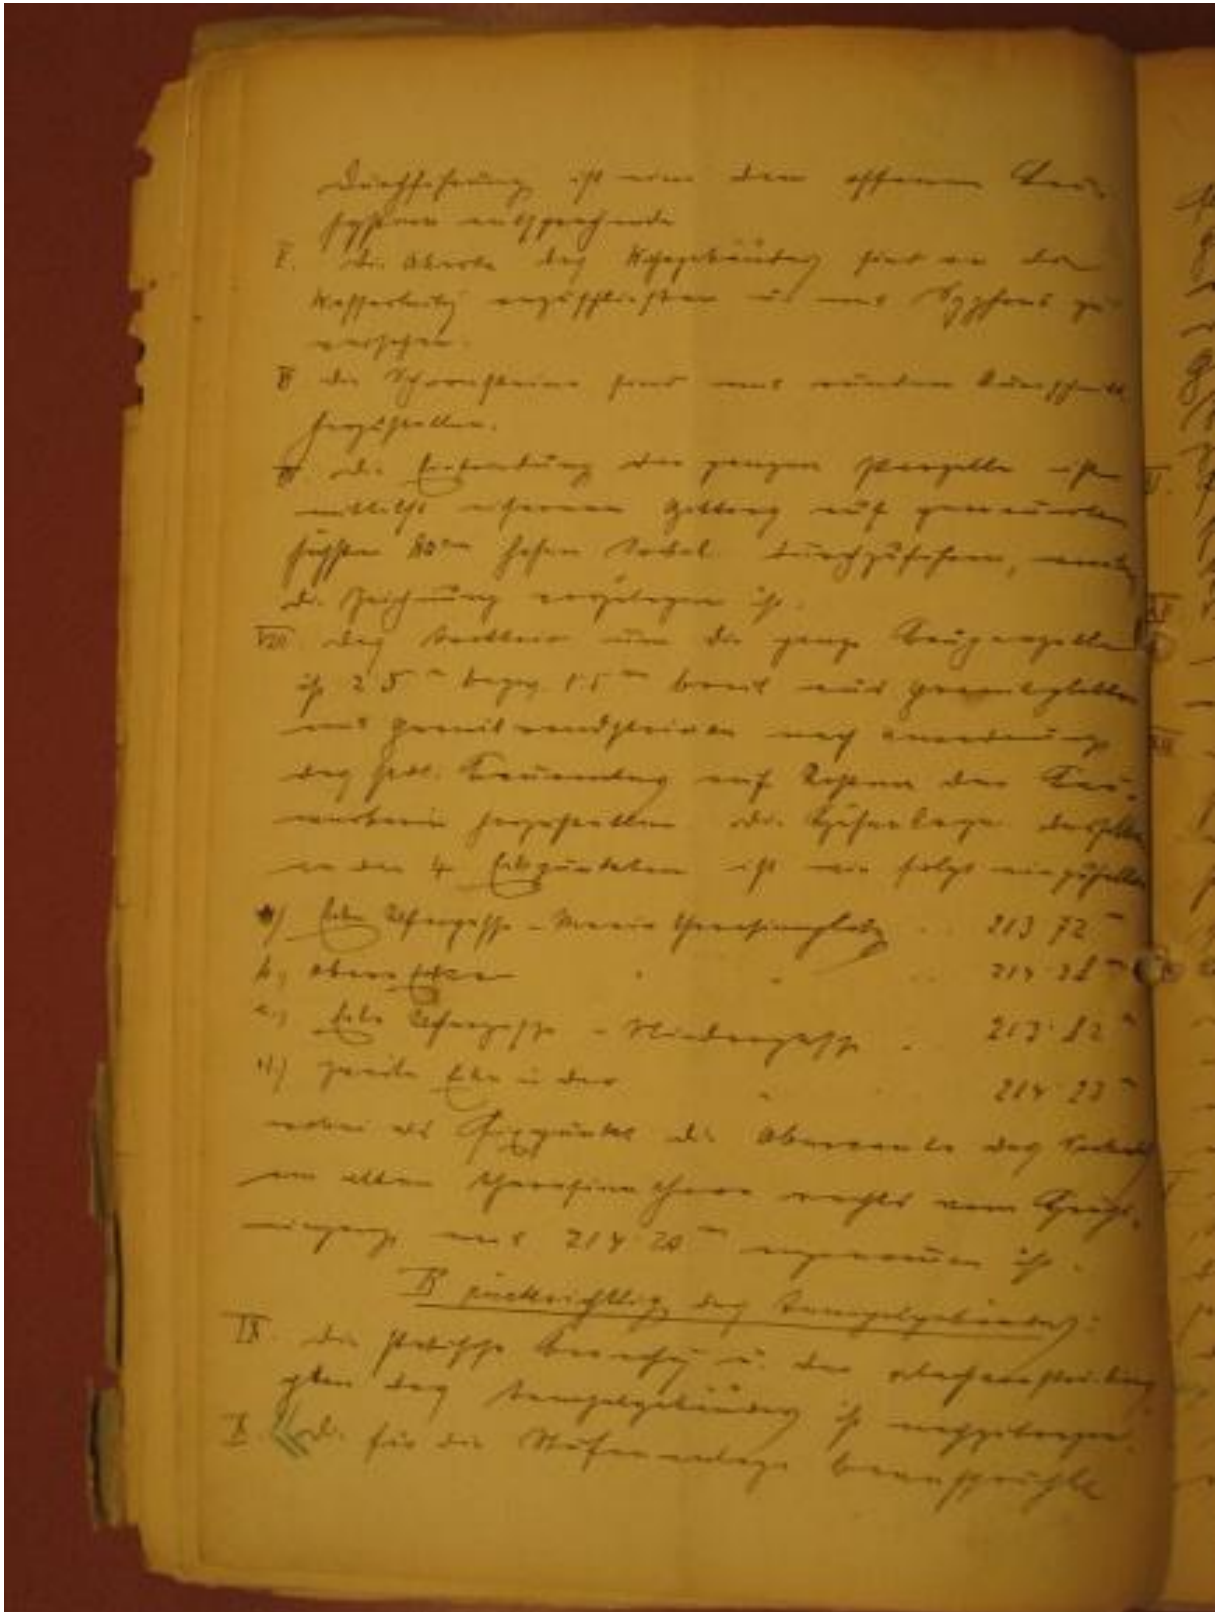 Durchführung ist eine dem offenen Bau-
systeme entsprechende
V. Die Aborte des Wohngebäudes sind an die
Wasserleitg anzuschließen u. mit Syphons zu
versehen.
VI die Schornsteine sind mit runden Querschnitt
herzustellen.
VII. Die Einfriedung der ganzen Parzelle ist
mittelst eisernen Gitters auf gemauerten
hohen Sockel durchzuführen,
die Zeichnung vorzulegen ist.
VIII. das Trottoir um die ganze Bauparzelle
ist 2 5 m bezw. 1 5 m breit aus Granitplatten
mit Granitrandsteinen nach Anordnung
des städt. Bauamtes auf Kosten der Bau-
werberin herzustellen Die Höhenlage desselben
in den 4 Eckpunkten ist wie folgt einzuhalten
a) Ecke Ufergasse - Maria Theresienplatz .. 213 72 m
b.) obere Ecke " " .. 214 28 m
c.) Ecke Ufergasse - .. 213. 82 m
d.) zweite Ecke in der " 214. 23 m
wobei als Fixpunkt die Oberkante des Sockels
am alten rechts vom
eingange mit 214 20 m angenommen ist.
B rücksichtlich des Tempelgebäudes:
IX. die statische Berechng u. der
plan des Tempelgebäudes ist nachzutragen.
X Die für die Stufenanlage beanspruchte